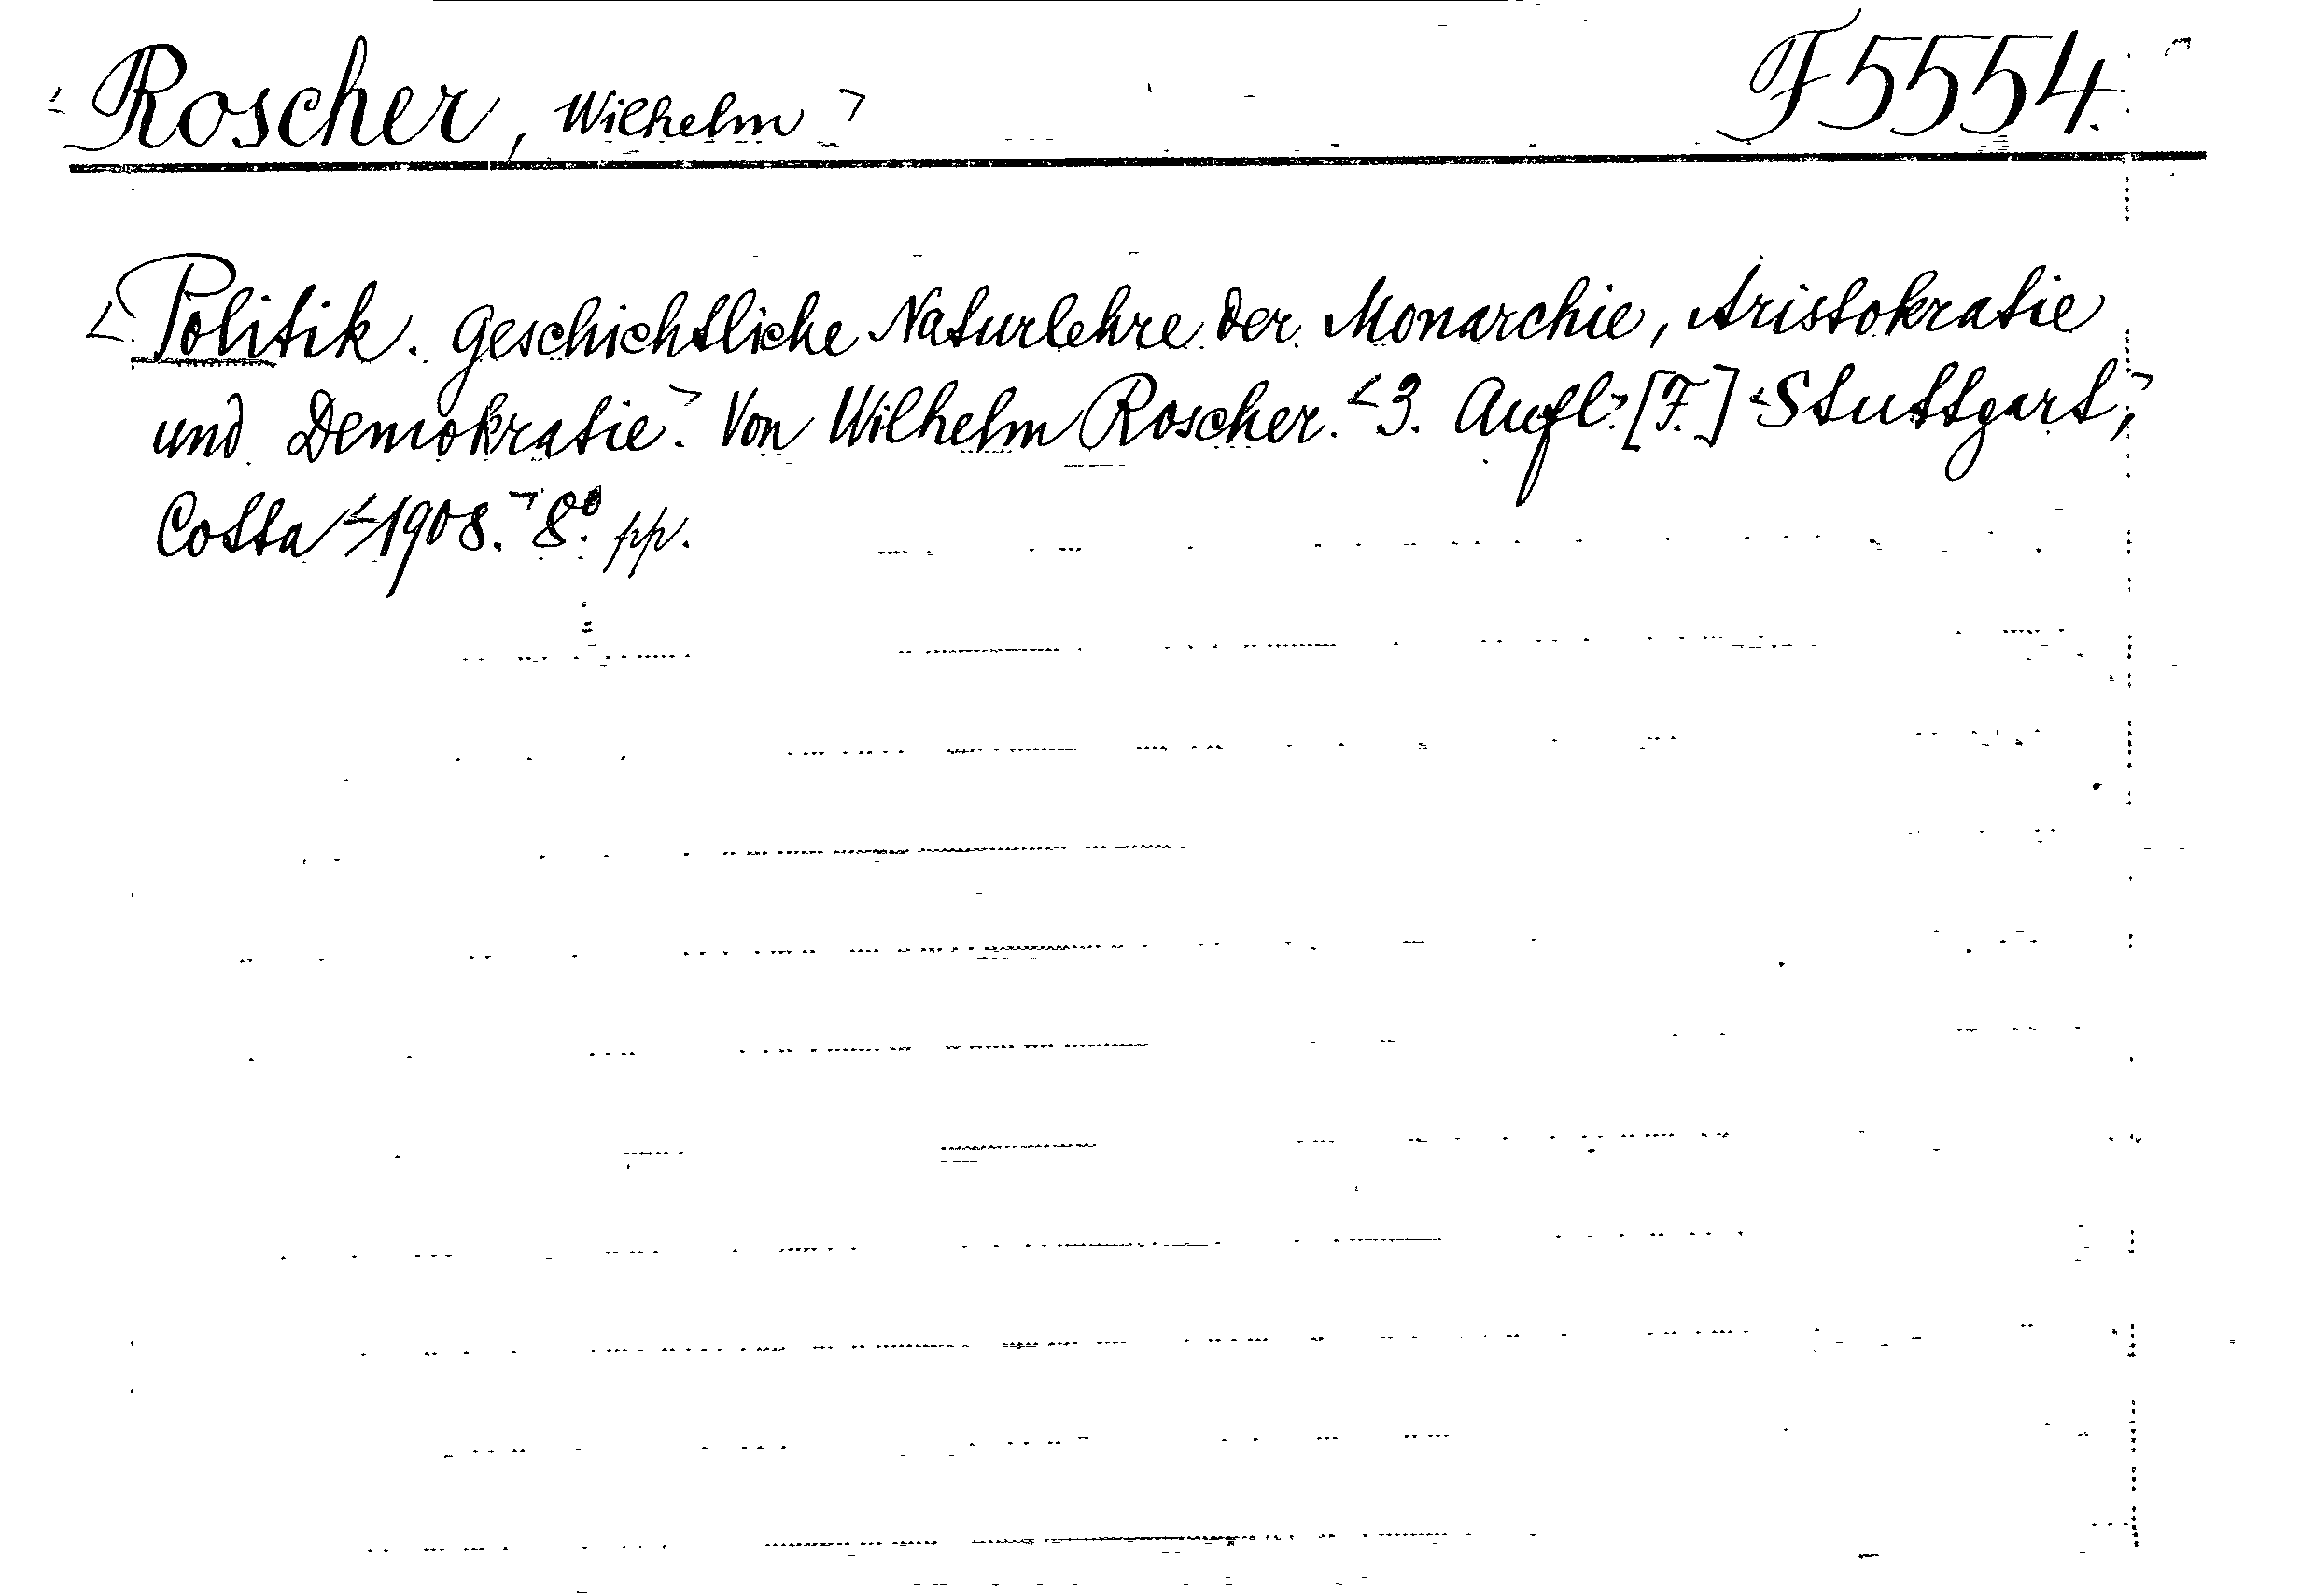 <Roscher, Wilhelm> F 5554.
<Politik. Geschichtliche Naturlehre der Monarchie, Aristokratie
und Demokratie.> Von Wilhelm Roscher. <3. Aufl.> [F.] <Stuttgart,>
Cotta <1908.> 8° pp.